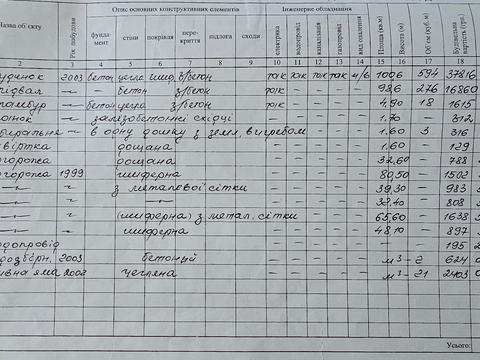 Назва об`єкту Рік побудови Опис основних конструктивних елементів Інженерне обладнання Площа (кв.м) Висота (м) Об`єм (куб. м) Відновна вартість (грн.)
фунда-мент стіни покрівля пере-криття підлога сходи електрика водопровід каналізація газопровід вид опалення
2 3 4 5 6 7 8 9 10 11 12 13 14 15 16 17 18
удинок 2003 бетон цегла шиф. з/бетон так так так так 594 37816
ідвал бетон з/бетон так 98,6 276 16860
амбур бетон цегла з/бетон так 4,90 18 1615
анок залізобетонні східці 1.70 312
биральня в одну дошку з земл. вигребом 1.60 3 316
віртка дощана 1.60 129
горожа дощана 32,60 788
горожа 1999 шиферна 80,50 1502
з металевої сітки 39,30 983
32,40 808
(шиферна) з метал. сітки 65,60 1638
шиферна 48,10 897
одопровід 195
2003 бетонний м³ 624
ивна яма 2002 цегляна м³ – 21 2403
Усього: